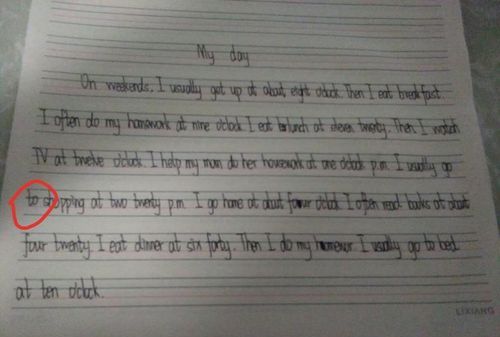 My day
On weekends, I usually get up at about eight o'clock. Then I eat breakfast.
I often do my homework at nine o'clock I eat brlunch at eleven twenty. Then I watch
TV at twelve o'clock I help my mom do her housework at one o'clock p.m. I usually go
to shopping at two twenty p.m. I go home at about four o'clock I often read books at about
four twenty. I eat dinner at six forty. Then I do my I usually go to bed
at ten o'clock.
LIXIANG